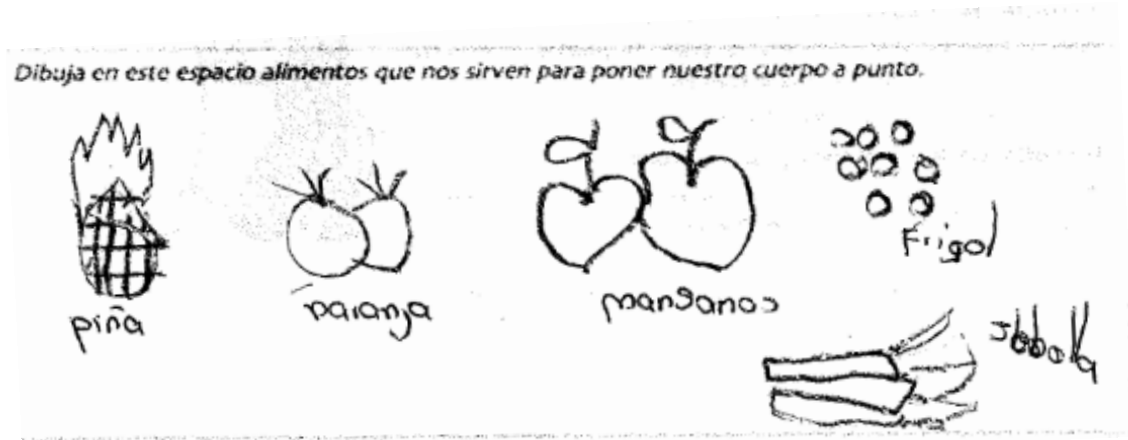 Dibuja en este espacio alimentos que nos sirven para poner nuestro cuerpo a punto.
piña
naranja
manganos
Frigol